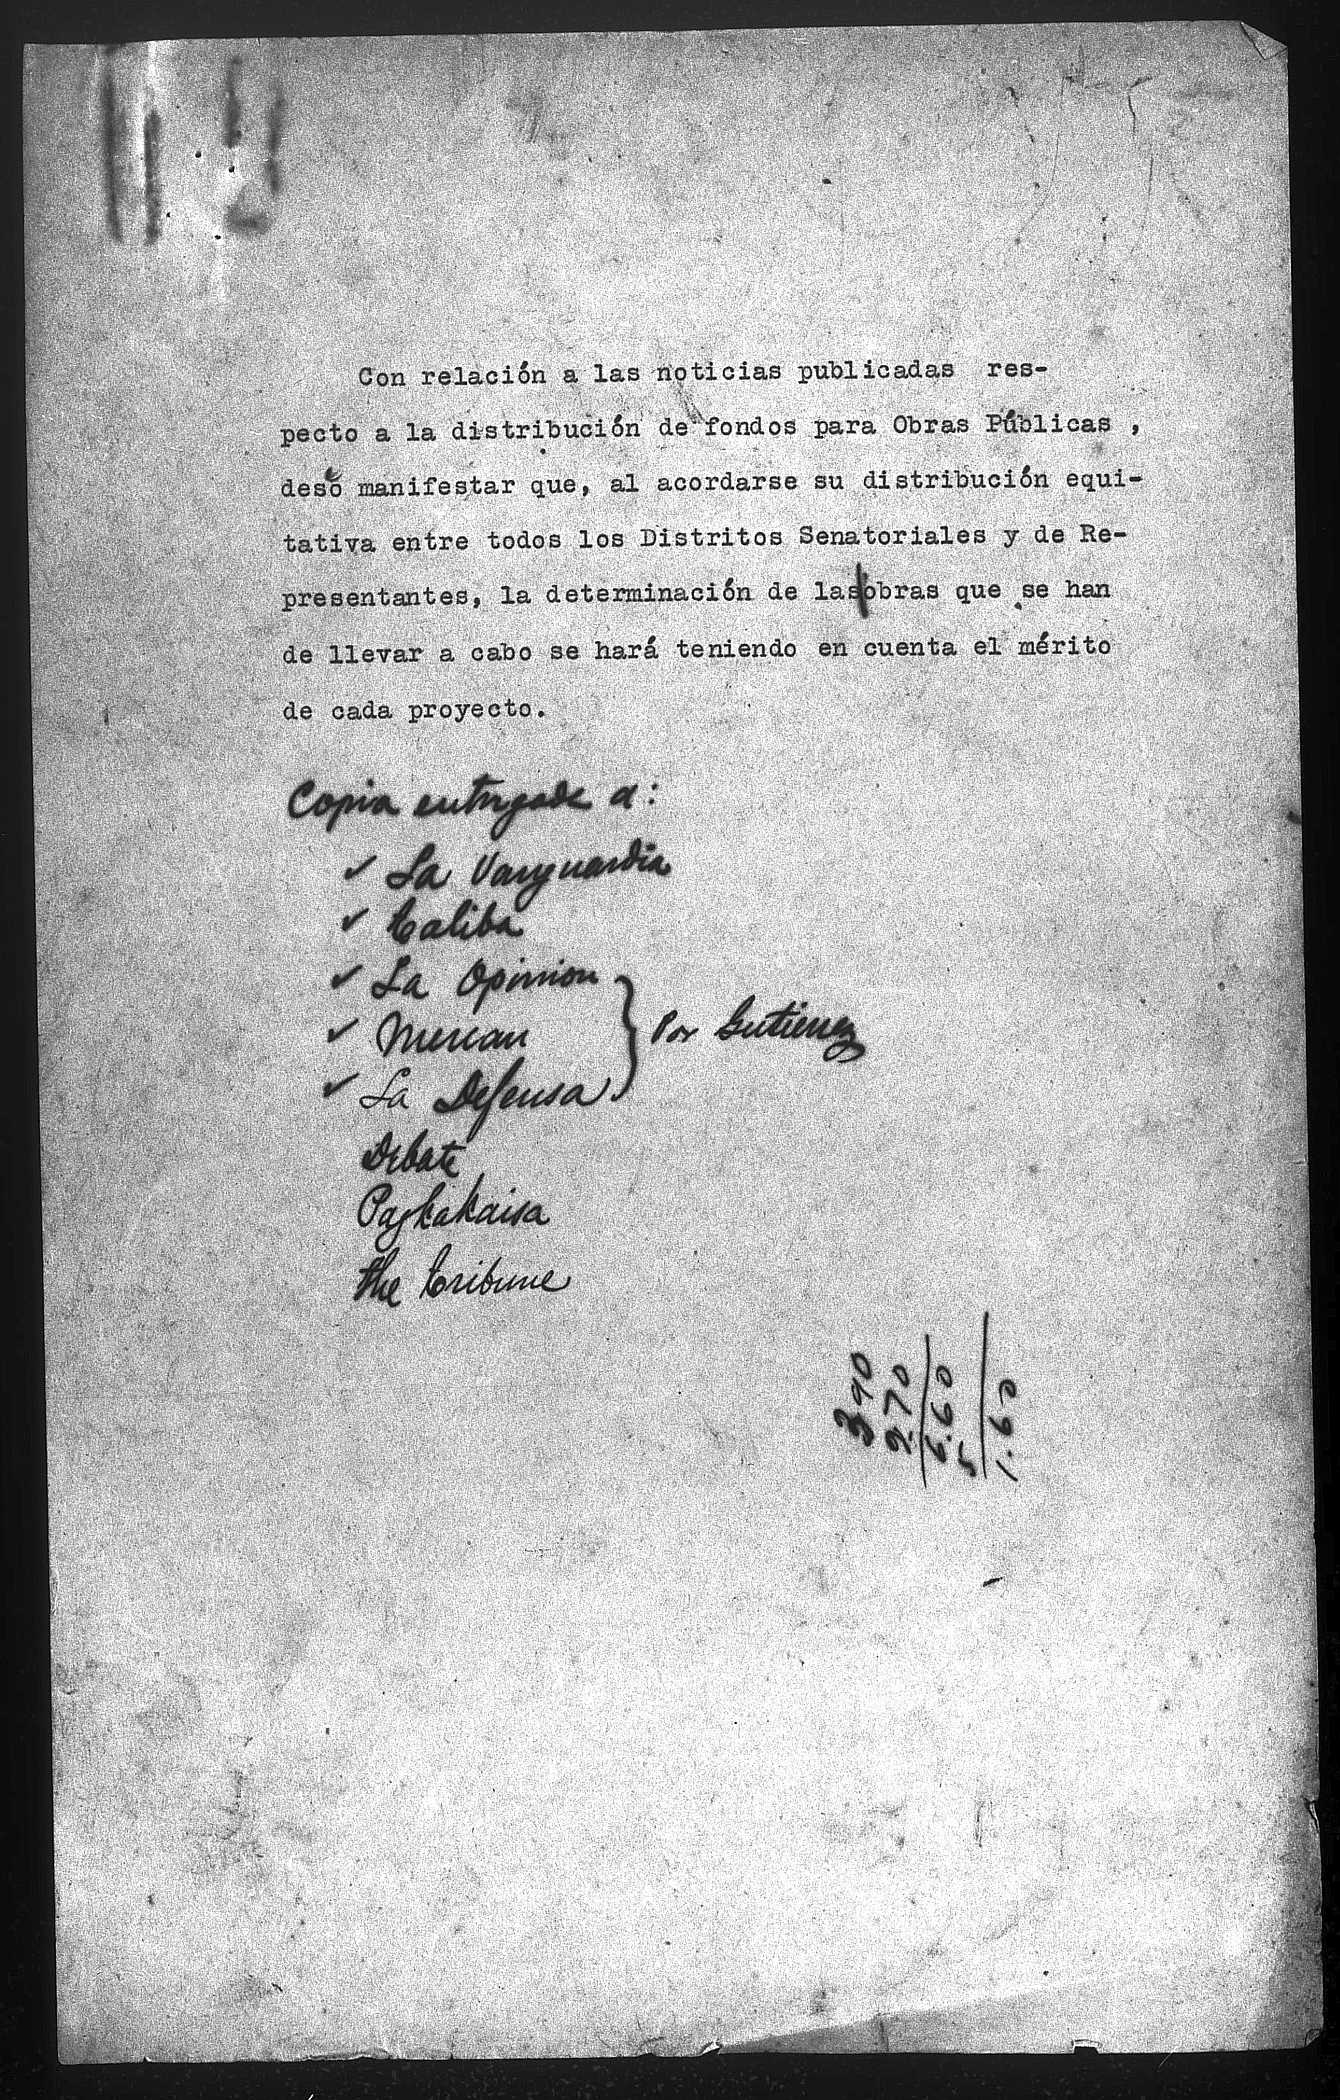 Con relación a las noticias publicadas res-
pecto a la distribución de fondos para Obras Públicas ,
deseo manifestar que, al acordarse su distribución equi-
tativa entre todos los Distritos Senatoriales y de Re-
presentantes, la determinación de las|obras que se han
de llevar a cabo se hará teniendo en cuenta el mérito
de cada proyecto.
Copia entregada a:
✓ La Vanguardia
✓ Taliba
✓ La Opinion
✓ Mercan
✓ La Defensa
} Por Gutierrez
Debate
Pagkakaisa
The Tribune
3 90
2.70
6.60
5
1.60